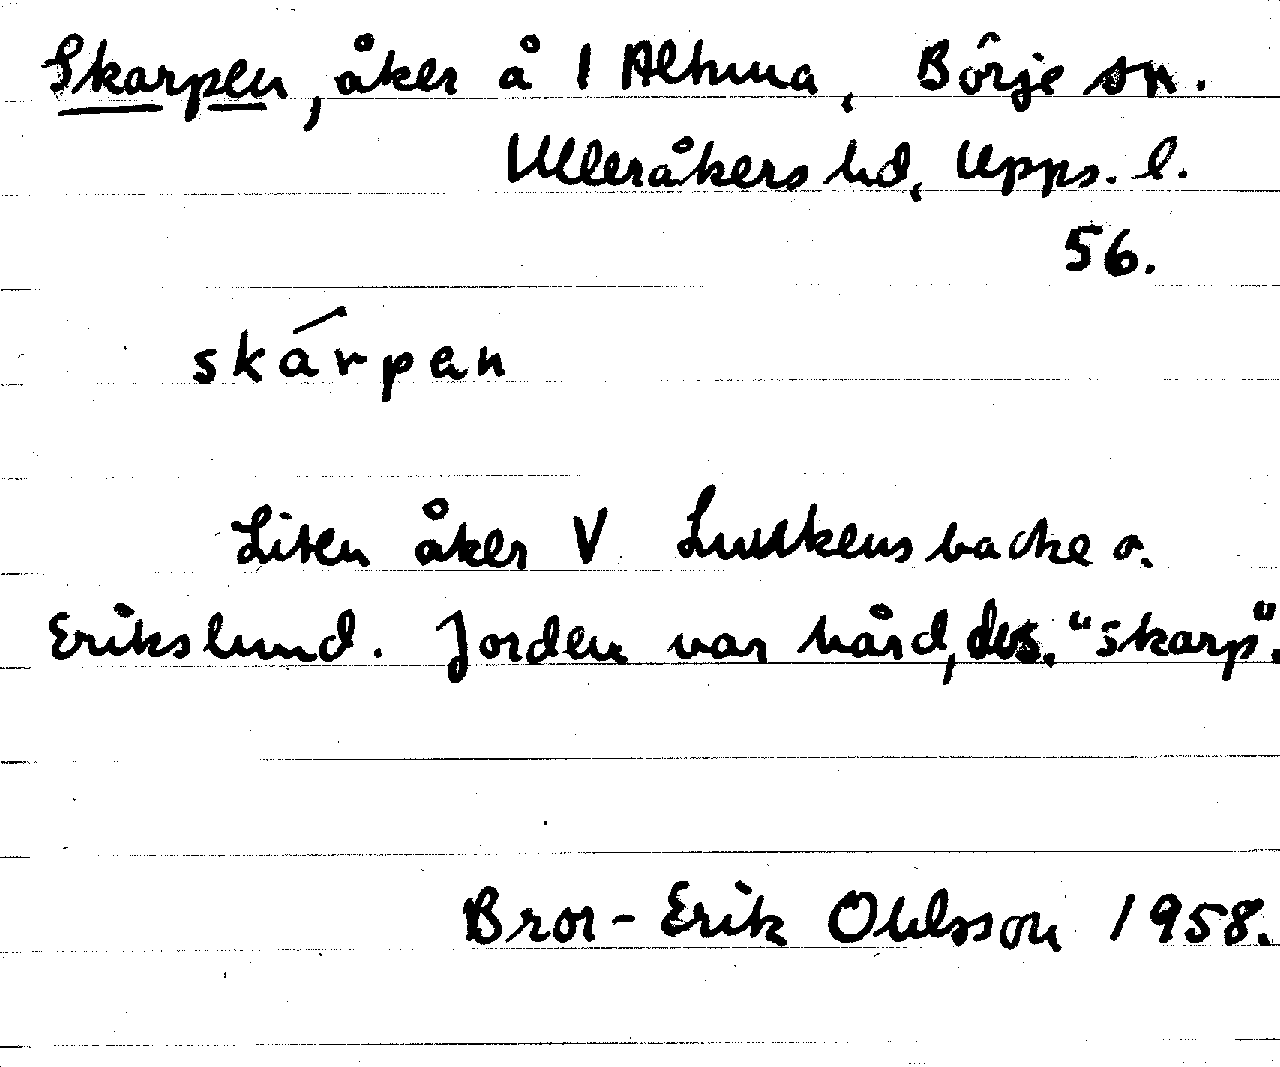 Skarpen, åker å 1 Altuna, Börje sn.
Ulleråkers hd, Upps. l.
56.
skárpen
Liten åker V backe o.
Erikslund. Jorden var hård, dvs. "skarp".
Bror-Erik Ohlsson 1958.